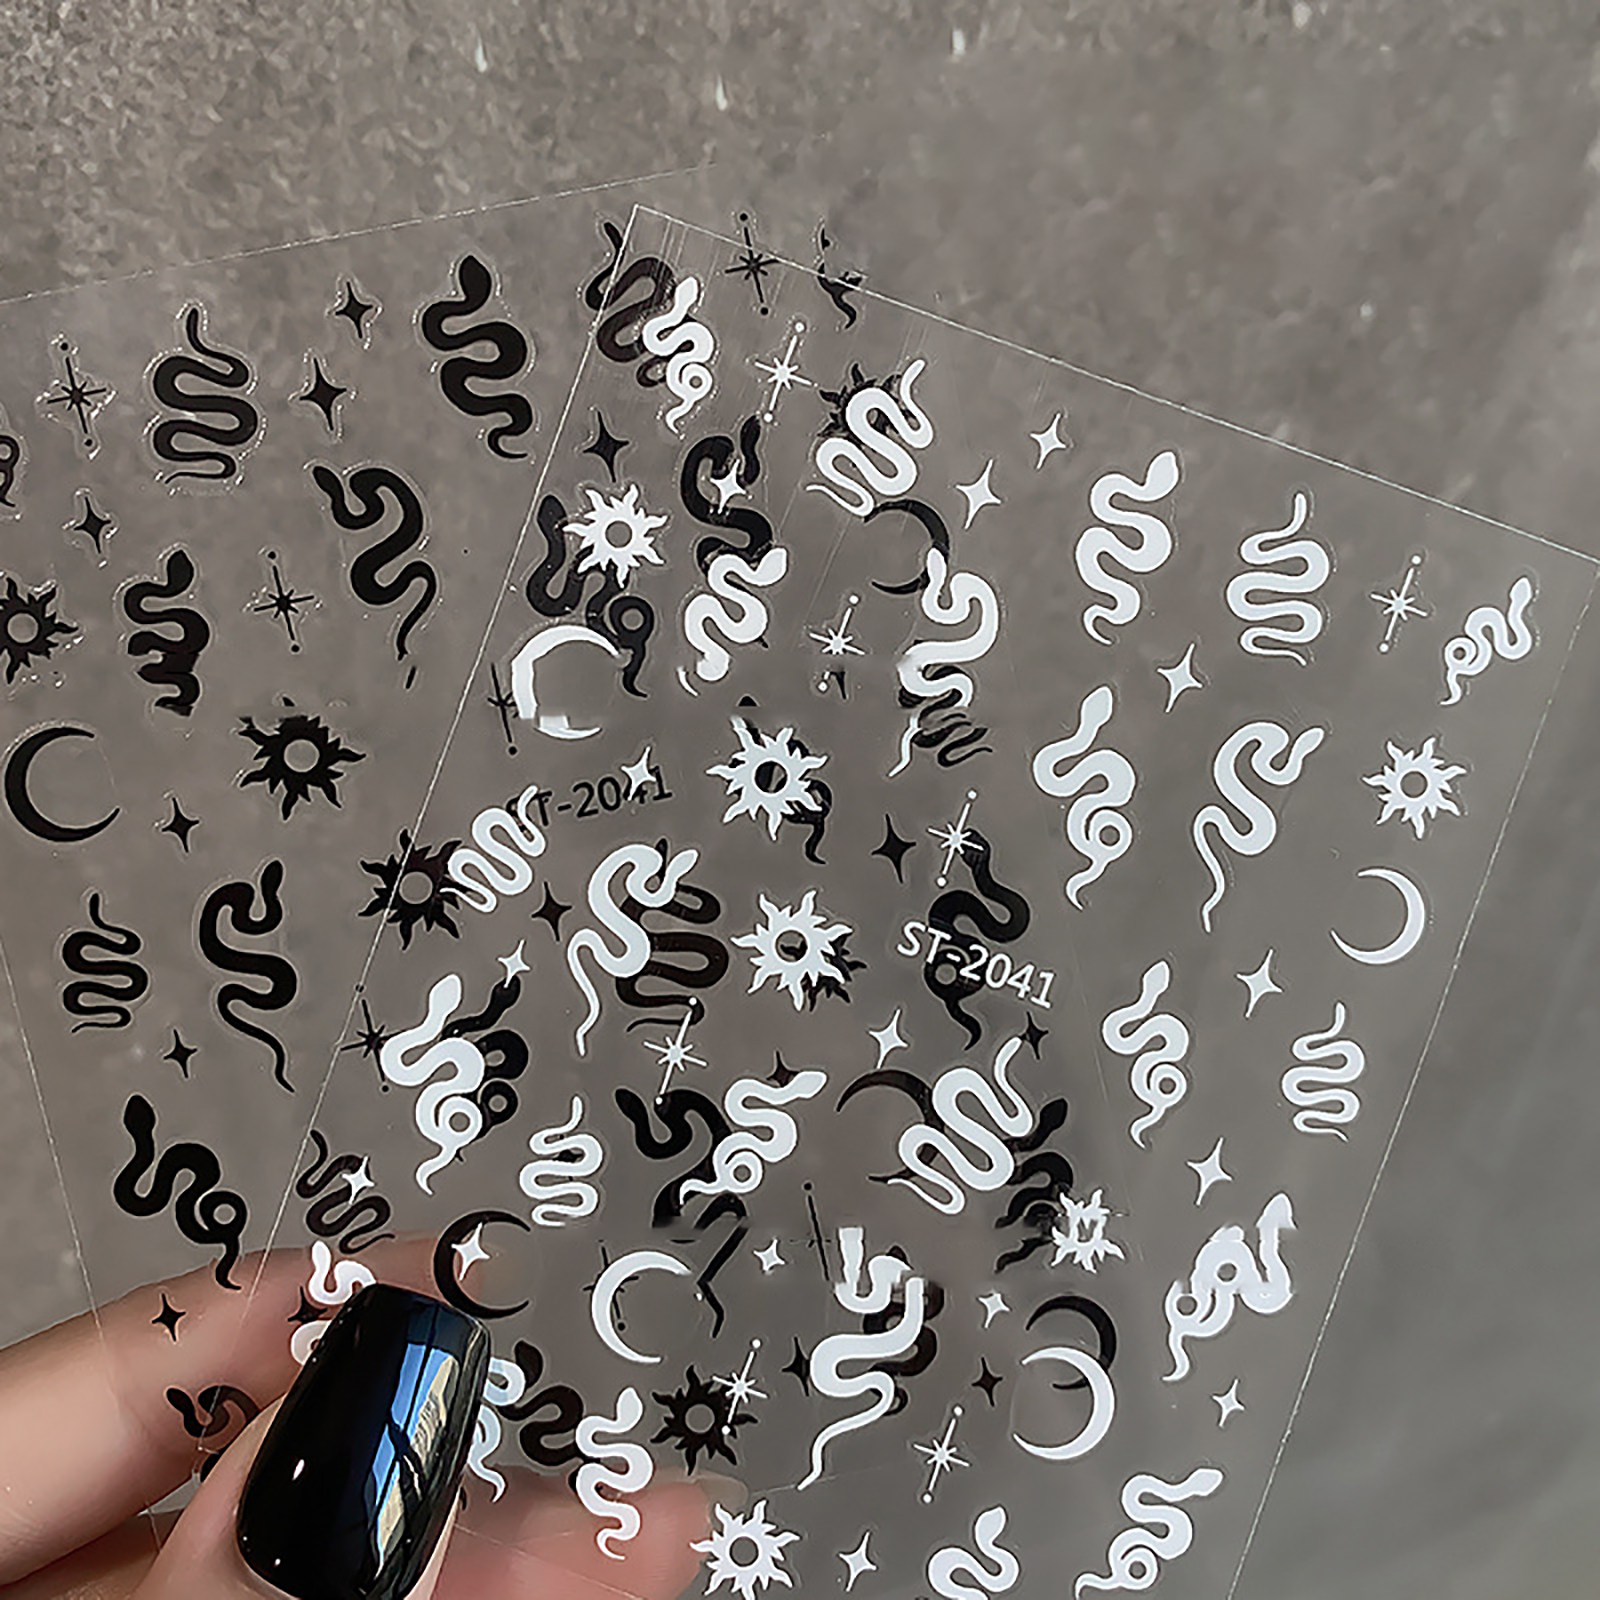 ST-2041
ST-2041